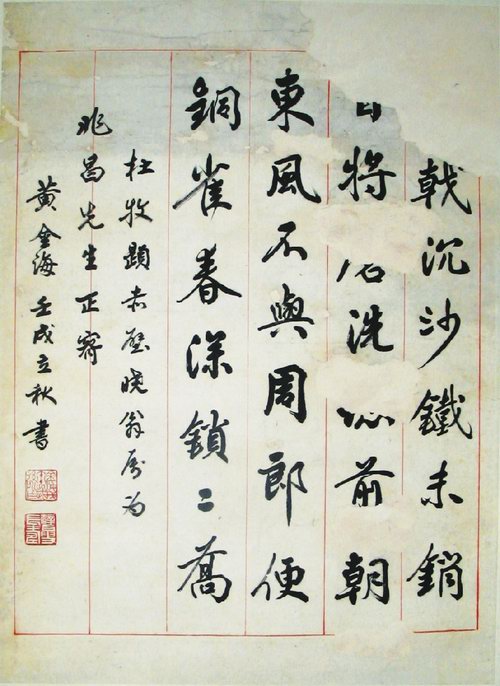 戟沉沙鐵未銷
將洗前朝
東風不與周郎便
銅雀春深鎖二喬
杜牧題赤壁曉翁属为
兆昌先生正
黄金海 壬戌立秋書